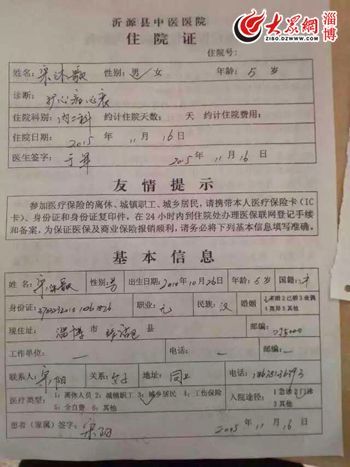 大众网 淄博
ZIBO.DZWWW.COM
沂源县中医医院
住院证
住院号:
姓名: 性别: 男/女 年龄: 5 岁
诊断:
住院科别: 内二科 约计住院天数: 天 约计住院费用:
住院日期: 2015 年 11 月 16 日
医生签字: 2015 年 11 月 16 日
友情提示
参加医疗保险的离休、城镇职工、城乡居民,请携带本人医疗保险卡(IC
卡)、身份证和身份证复印件,在24小时内到住院处办理医保联网登记手续
和备案,为保证医保及商业保险报销顺利,请务必将下列基本信息填写准确。
基本信息
姓名: 性别: 男 出生日期: 2010 年 10 月 26 日 年龄: 5 岁 国籍:
身份证: 职业: 无 民族: 汉 婚姻
现住址: 淄博 市 县 邮编:
工作单位: — 电话: — 邮编: —
联系人: 宋阳 关系: 父子 地址: 同上 电话:
医疗类型: 1; 离休人员 2; 城镇职工、3; 城乡居民 4; 工伤保险
5; 全自费 6; 其他
入院途径: 1 急诊 2 门诊
3 其他
患者(家属)签字: 宋阳 2015 年 11 月 16 日